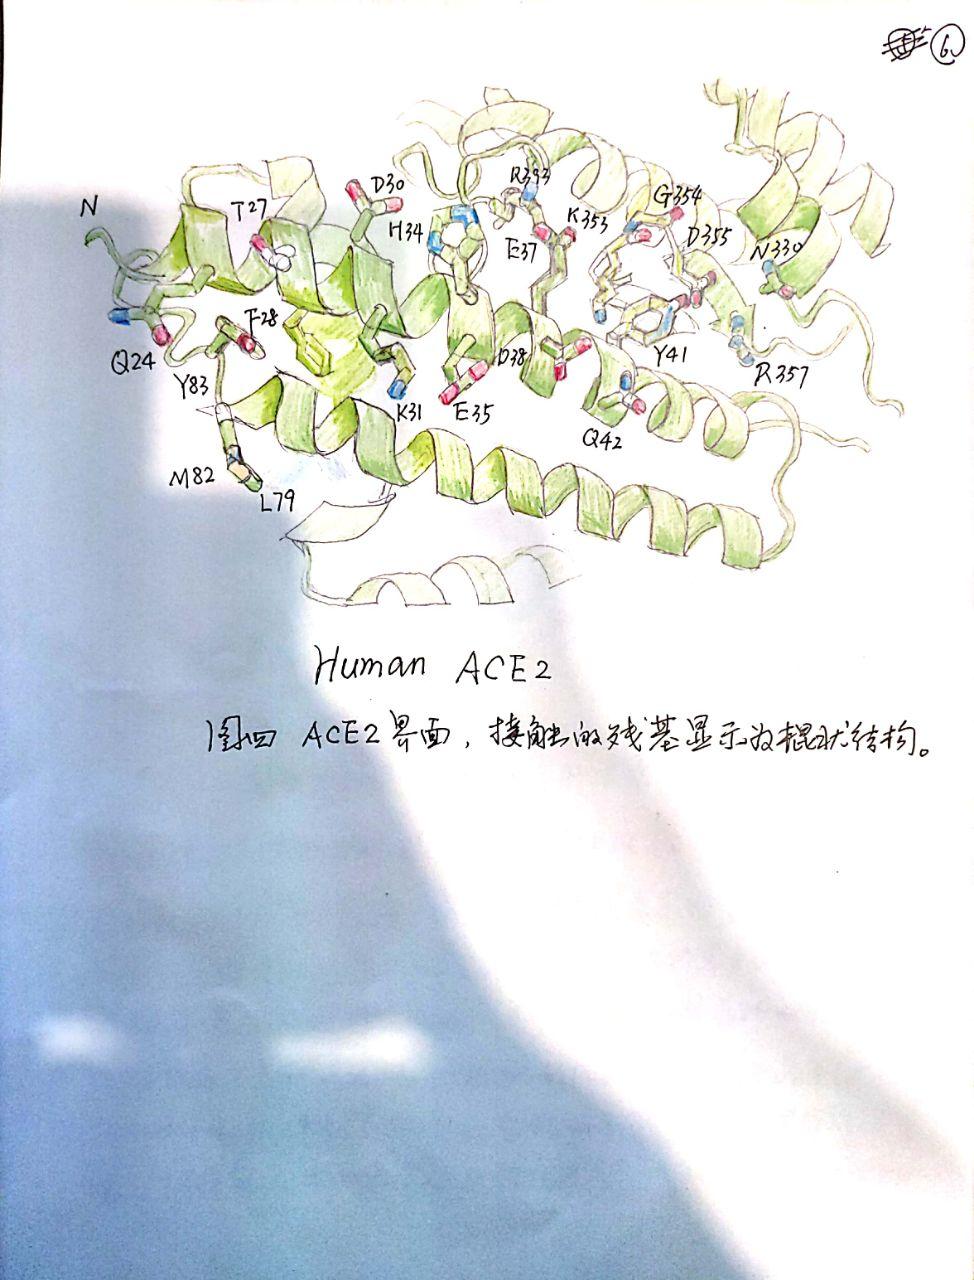 6
N
T27
D30
H34
R393
E37
K353
G354
D355
N330
Q24
F28
Y83
K31
E35
D38
Y41
R357
Q42
M82
L79
Human ACE2
图四 ACE2界面，接触的残基显示为棍状结构。